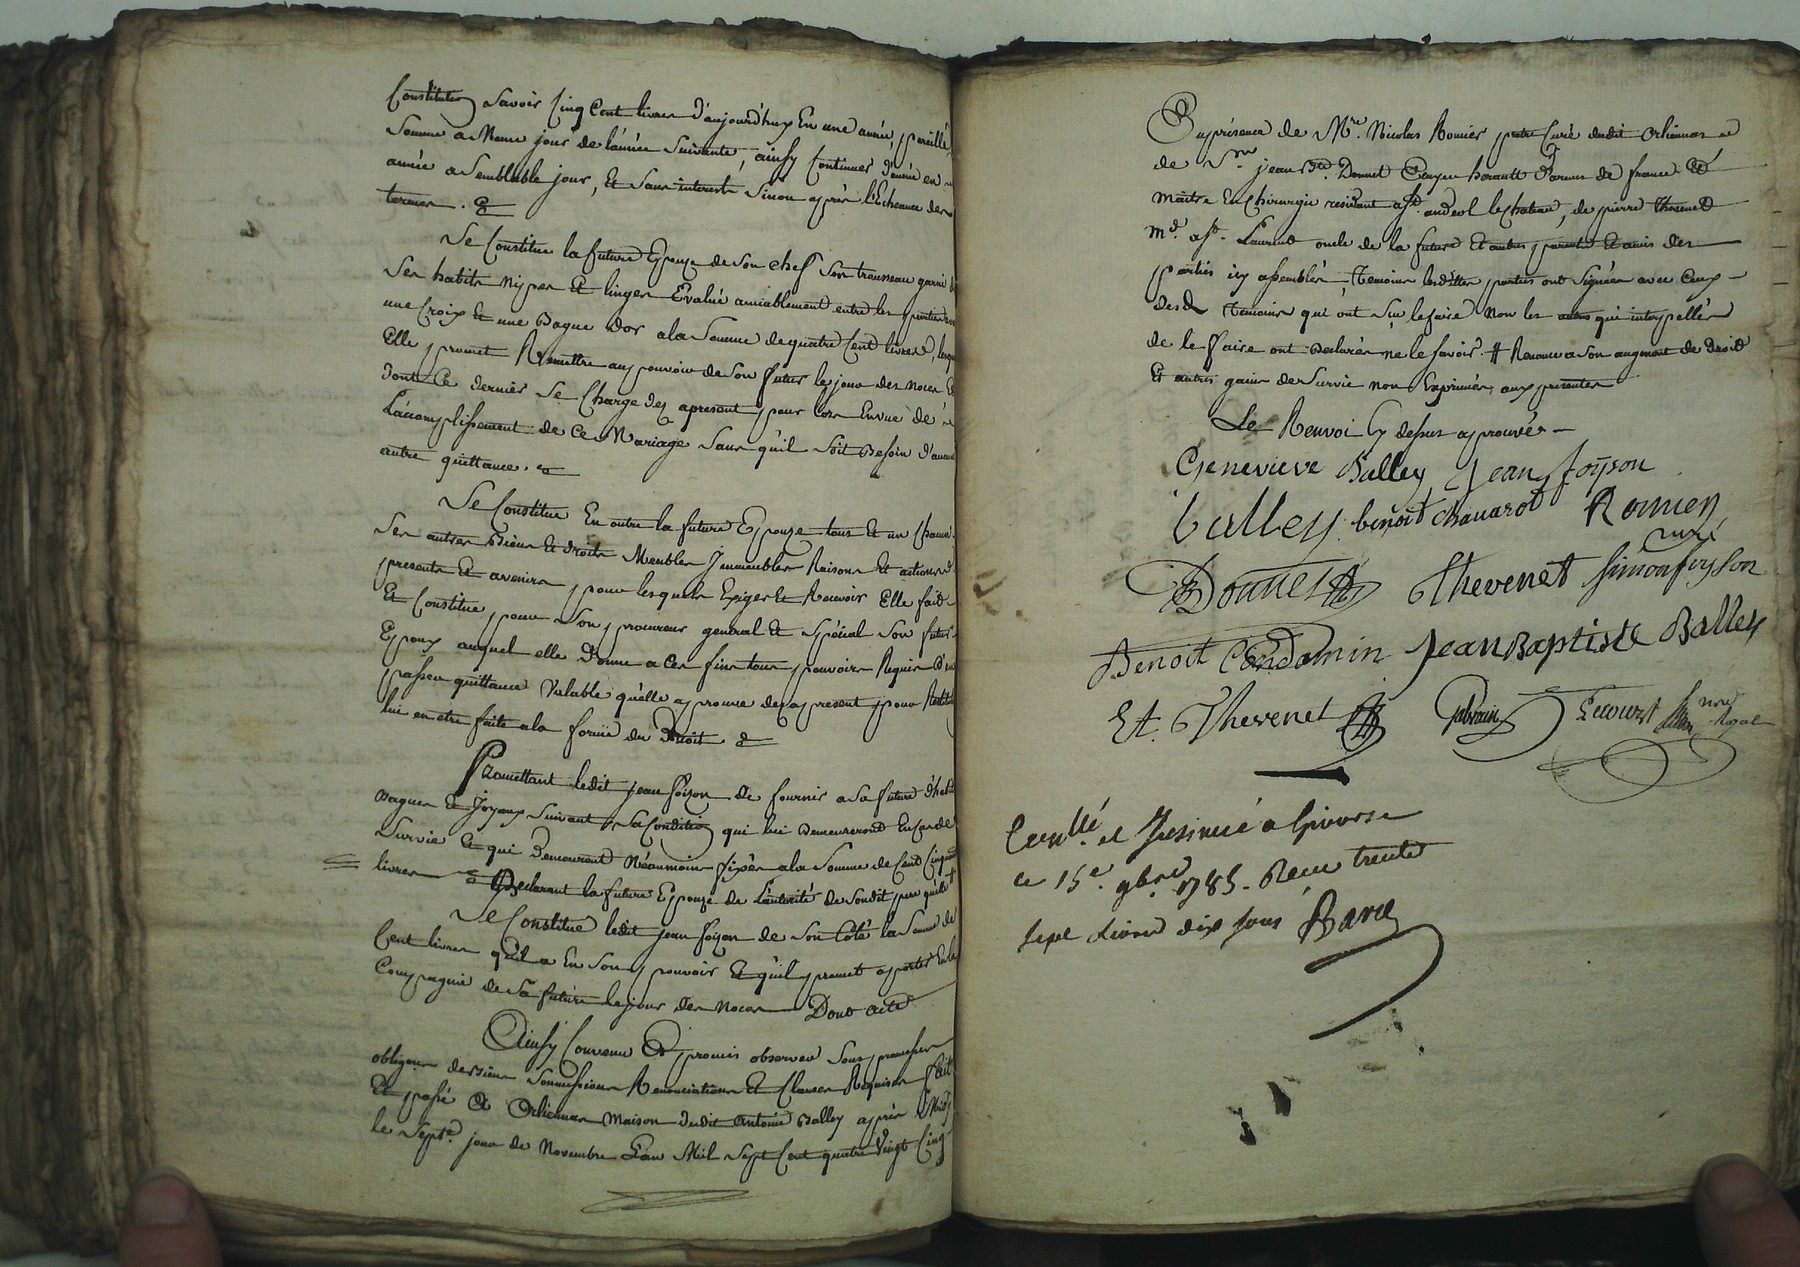 Constitution savoir Cinq Cent livres d'aujourd'huy En une année, pareille
Somme a Meme jour de l'année Suivante, ainsy Continuer d'année en
année a Semblable jour, Et Sans interests Sinon après l'Echeance des
termes.
Se Constitue la future Epouze de Son chef Son trousseau garni
Ses habits Nipes Et linges Evalué amiablement entre les parties
une Croix Et une Bague d'or a la Somme de quatre Cent livres,
Elle promet Remettre au pouvoir de Son futur le jour des noces
dont Ce dernier Se Charge des apresent pour lors En vue de
l'accomplissement de Ce Mariage Sans qu'il Soit Besoin d'aucune
autre quittance.
Se Constitue En outre la future Epouze tous Et un Chacun
Ses autres Biens Et droits Meubles Immeubles Raisons Et actions
presents Et avenirs pour lesquels Exiger Et Recevoir Elle fait
Et Constitue pour Son procureur general Et Spécial Son futur
Epoux auquel elle donne a Ces fins tous pouvoirs Requis d'en
passer quittance Valable qu'elle aprouve des apresent pour
lui en etre faite a la forme du Droit
Promettant ledit jean foizon de fournir a Sa future d'habits
Bagues Et Joyaux Suivant Sa Condition qui lui Demeureront En Cas de
Survie Et qui demeurent Néanmoins fixés a la Somme de Cent Cinquante
livres Declarant la future Epouze de l'autorité de Sondit pere qu'elle #
Se Constitue ledit jean foizon de Son Coté la Somme de
Cent livres qu'il a En Son pouvoir Et qu'il promet aporter En la
Compagnie de Sa future le jour des Noces Dont acte
Ainsy Convenu Et promis observer Sous
obligation de biens Soumissions Renonciations Et Clauses Requises fait
Et passé A Orlienas Maison dudit antoine Balley après Midy
le Septe. jour de Novembre L'an Mil Sept Cent quatre Vingt Cinq
En présence de Mre. Nicolas Romier Curé dudit Orlienas
de Sr. jean Bte. Donnet Ecuyer herault d'armes de france
maitre En chirurgie residant a St. andeol le chateau, de pierre thevenet
md. a St. Laurent oncle de la future Et autres parents Et amis des
parties icy assemblés, temoins lesdittes parties ont Signées avec Ceux
desd. temoins qui ont Sçu le faire Non les autres qui interpellés
de le faire ont declarés ne le Savoir. # Renonce a Son augment de droit
Et autres gains de Survie non Exprimés aux presentes
Le Renvoi Cy dessus aprouvé
Genevieve Balley Jean foÿson
balley benoit chavarot Romier
curé
Donnet Thevenet Simon foyson
Benoit Condamin Jean Baptiste Balley
Et. Thevenet Lecourt nre Royal
Conllé. et Insinué a Givors
ce 15e. 9bre. 1785. Recu trente
sept livres dix sous